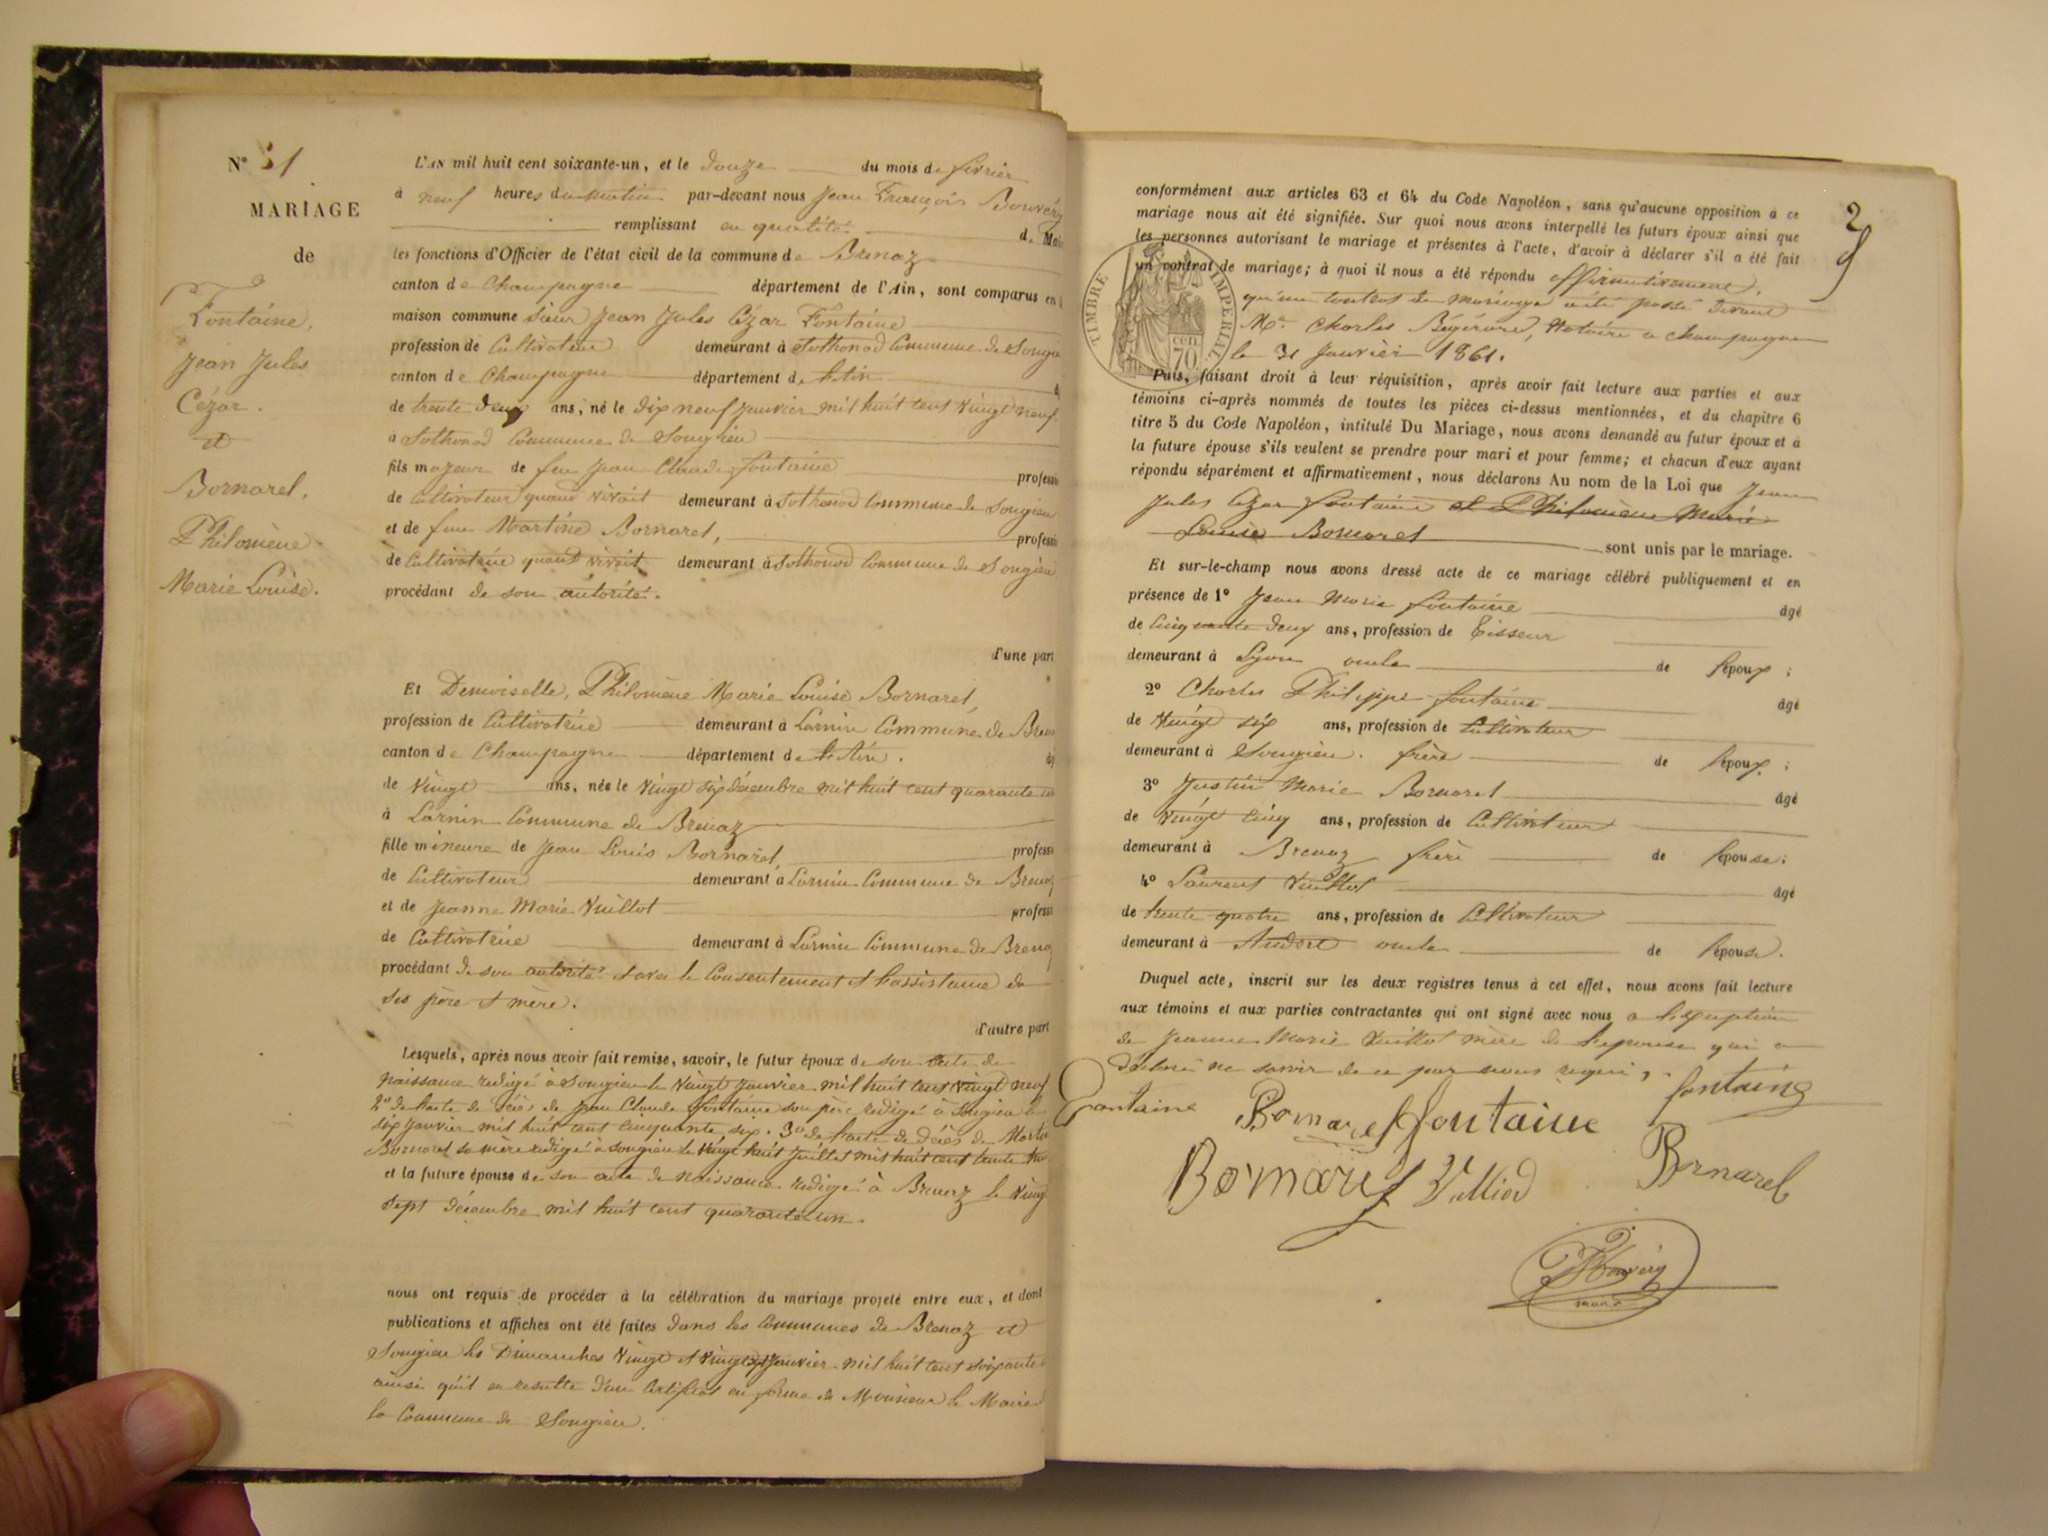 MARIAGE
de
Fontaine,
Jean Jules
Cézar.
et
Bornarel,
Philomène
Marie Louise.
L'AN mil huit cent soixante-un, et le douze du mois de février
à neuf heures du matin par-devant nous Jean François Bouvéry
remplissant en qualité de Maire
les fonctions d'Officier de l'état civil de la commune de Brenaz
canton de Champagne département de l'Ain, sont comparus en
maison commune sieur Jean Jules Cézar Fontaine
profession de Cultivateur demeurant à Sothonod Commune de Songieu
canton de Champagne département de l'Ain
de trente deux ans, né le dix neuf janvier mil huit cent vingt neuf
à Sothonod Commune de Songieu
fils majeur de feu Jean Claude fontaine profession
de Cultivateur quand vivait demeurant à Sothonod Commune de Songieu
et de feue Martine Bornarel, profession
de Cultivatrice quand vivait demeurant à Sothonod Commune de Songieu
procédant de son autorité.
d'une part
Et Demoiselle, Philomène Marie Louise Bornarel,
profession de Cultivatrice demeurant à Larnin Commune de Brenaz
canton de Champagne département de l'Ain.
de vingt ans, née le vingt six décembre mil huit cent quarante
à Larnin Commune de Brenaz
fille mineure de Jean Louis Bornarel, profession
de Cultivateur demeurant à Larnin Commune de Brenaz
et de Jeanne Marie Vuillot profession
de Cultivatrice demeurant à Larnin Commune de Brenaz
procédant de son autorité et avec le Consentement et l'assistance de
ses père et mère.
d'autre part
Lesquels, après nous avoir fait remise, savoir, le futur époux de son acte de
naissance redigé à Songieu le vingt janvier mil huit cent vingt neuf
2° de l'acte de décès de Jean Claude fontaine son père redigé à Songieu le
six janvier mil huit cent cinquante six. 3° de l'acte de décès de Martine
Bornarel sa mère redigé à Songieu le vingt huit juillet mil huit cent trente
et la future épouse de son acte de naissance redigé à Brenaz le vingt
sept décembre mil huit cent quarante un.
nous ont requis de procéder à la célébration du mariage projeté entre eux, et dont
publications et affiches ont été faites dans les communes de Brenaz et
Songieu les Dimanches vingt et vingt sept janvier mil huit cent soixante
ainsi qu'il en resulte d'un certificat en forme de Monsieur le Maire de
la Commune de Songieu.
2
conformément aux articles 63 et 64 du Code Napoléon, sans qu'aucune opposition à ce
mariage nous ait été signifiée. Sur quoi nous avons interpellé les futurs époux ainsi que
les personnes autorisant le mariage et présentes à l'acte, d'avoir à déclarer s'il a été fait
un contrat de mariage; à quoi il nous a été répondu affirmativement,
qu'un contrat de mariage a été passé devant
Me Charles Notaire a champagne
le 31 Janvier 1861.
TIMBRE IMPERIAL
70 cen
Puis, faisant droit à leur réquisition, après avoir fait lecture aux parties et aux
témoins ci-après nommés de toutes les pièces ci-dessus mentionnées, et du chapitre 6
titre 5 du Code Napoléon, intitulé Du Mariage, nous avons demandé au futur époux et à
la future épouse s'ils veulent se prendre pour mari et pour femme; et chacun d'eux ayant
répondu séparément et affirmativement, nous déclarons Au nom de la Loi que Jean
Jules Cézar fontaine et Philomène Marie
Louise Bornarel sont unis par le mariage.
Et sur-le-champ nous avons dressé acte de ce mariage célébré publiquement et en
présence de 1° Jean Marie fontaine âgé
de cinquante deux ans, profession de Tisseur
demeurant à Lyon oncle de l'époux;
2° Charles Philippe fontaine âgé
de vingt six ans, profession de Cultivateur
demeurant à Songieu. frère de l'époux;
3° Justin Marie Bornarel âgé
de vingt cinq ans, profession de Cultivateur
demeurant à Brenaz frère de l'épouse;
4° Laurent Vuillot âgé
de trente quatre ans, profession de Cultivateur
demeurant à oncle de l'épouse.
Duquel acte, inscrit sur les deux registres tenus à cet effet, nous avons fait lecture
aux témoins et aux parties contractantes qui ont signé avec nous a l'exception
de Jeanne Marie Vuillot mère de l'epouse qui a
déclaré ne savoir de ce par nous requis,
fontaine
Fontaine Bornarel fontaine
Bornarel Bornarel
Bouvéry
maire